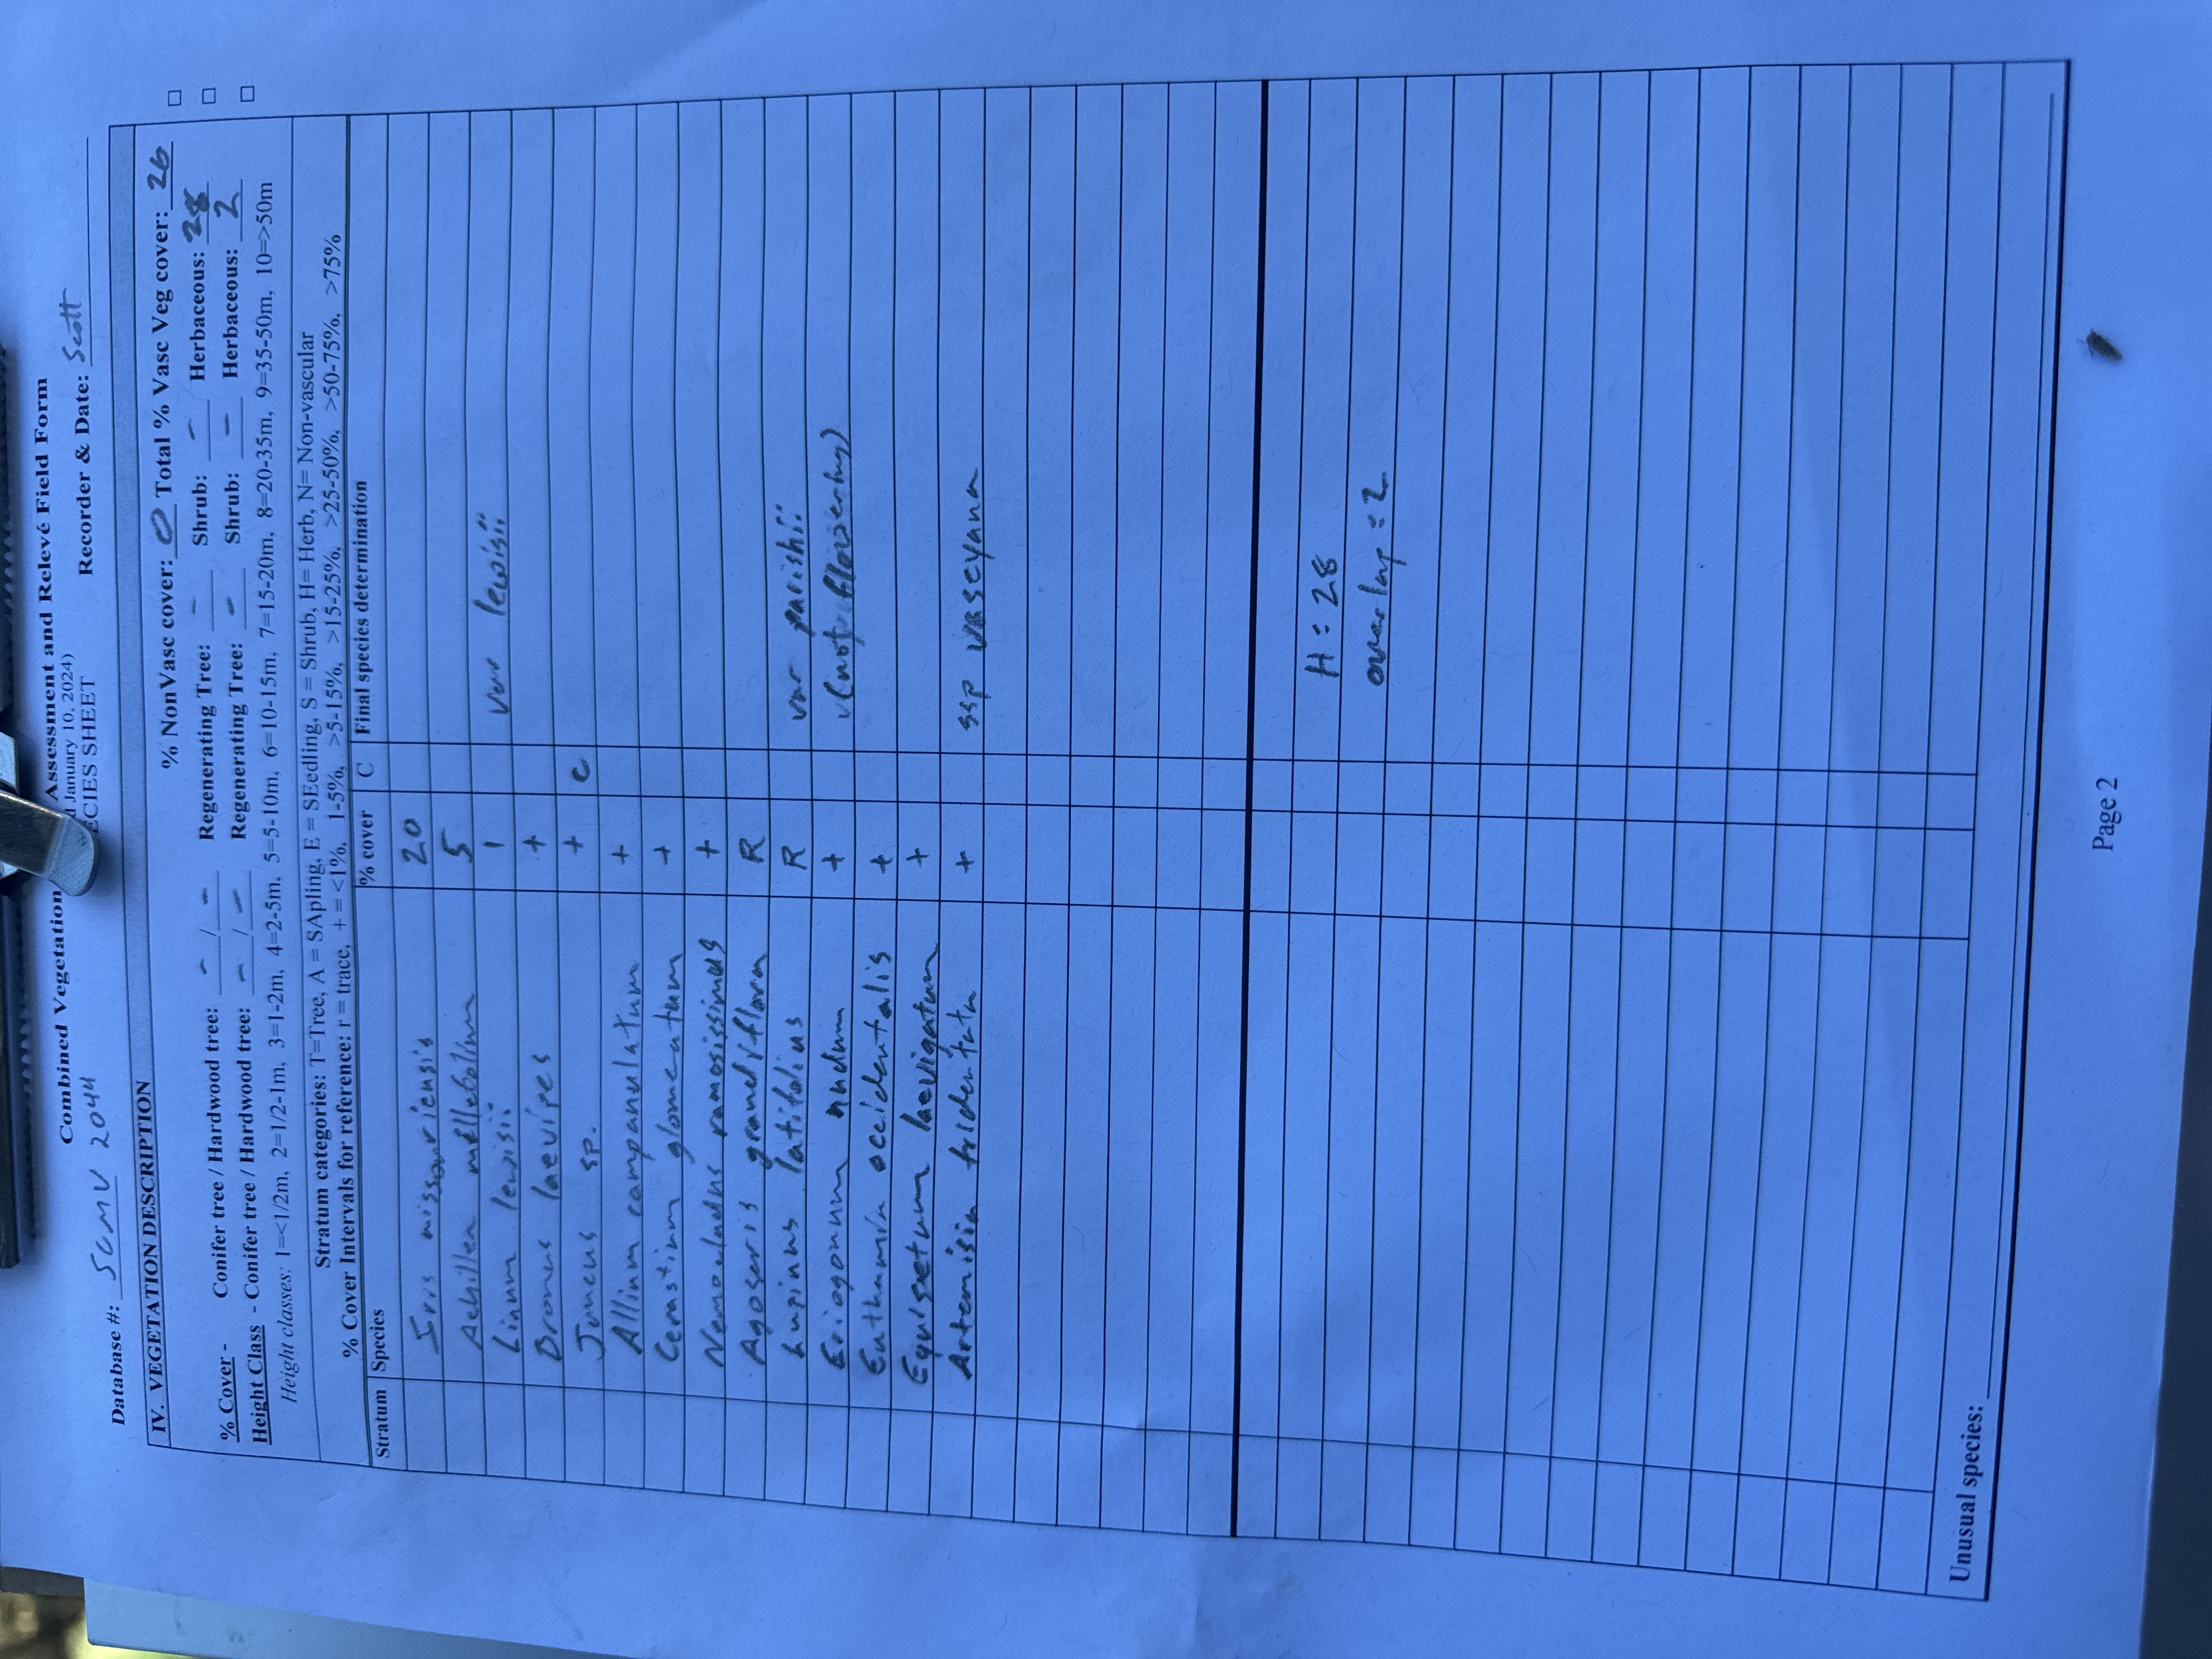 Combined Vegetation Assessment and Relevé Field Form
January 10, 2024)
ECIES SHEET
Database #: SCMV 2044 Recorder & Date: Scott
IV. VEGETATION DESCRIPTION
% NonVasc cover: 0 Total % Vasc Veg cover: 26 □
% Cover - Conifer tree / Hardwood tree: - / - Regenerating Tree: - Shrub: - Herbaceous: 28 □
Height Class - Conifer tree / Hardwood tree: - / - Regenerating Tree: - Shrub: - Herbaceous: 2 □
Height classes: 1=<1/2m, 2=1/2-1m, 3=1-2m, 4=2-5m, 5=5-10m, 6=10-15m, 7=15-20m, 8=20-35m, 9=35-50m, 10=>50m
Stratum categories: T=Tree, A = SApling, E = SEedling, S = Shrub, H= Herb, N= Non-vascular
% Cover Intervals for reference: r = trace, + = <1%, 1-5%, >5-15%, >15-25%, >25-50%, >50-75%, >75%
Stratum Species % cover C Final species determination
Iris missouriensis 20
Achillea millefolium 5
Linum lewisii 1 var lewisii
Bromus laevipes +
Juncus sp. + C
Allium campanulatum +
Cerastium glomeratum +
Nemacladus ramosissimus +
Agoseris grandiflora R
Lupinus latifolius R var parishii
Eriogonum nudum + (not flowering)
Euthamia occidentalis +
Equisetum laevigatum +
Artemisia tridentata + ssp vaseyana
H = 28
overlap = 2
Unusual species:
Page 2